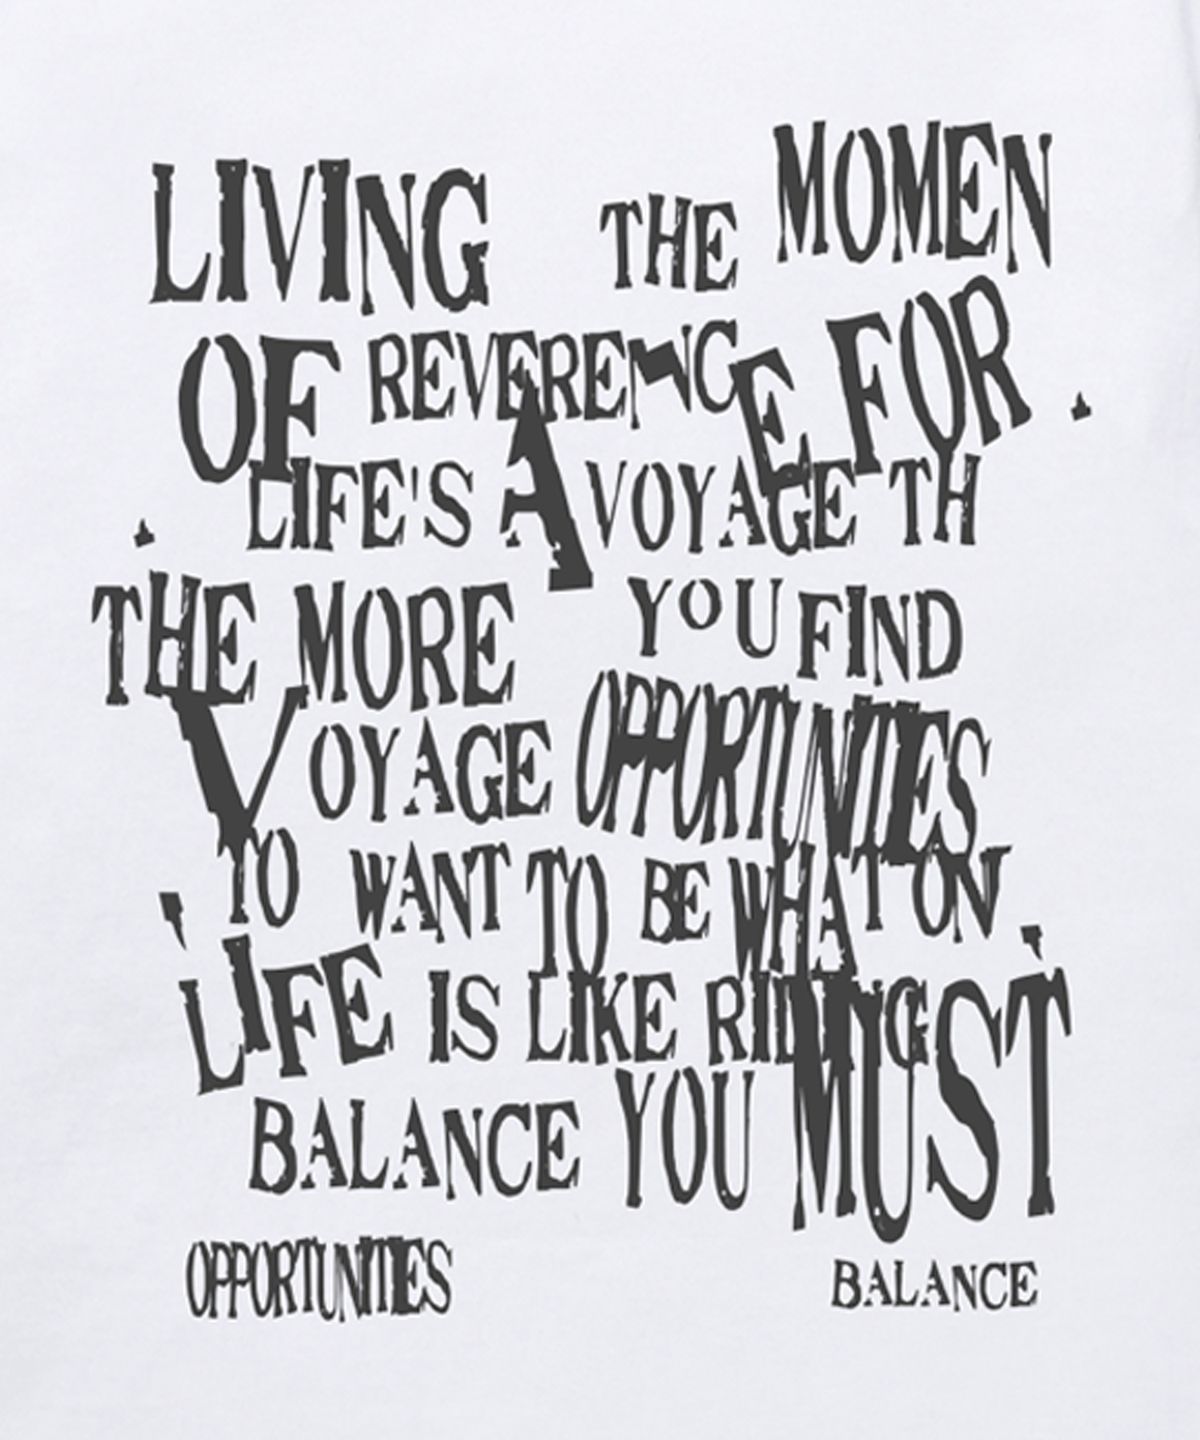 LIVING THE MOMEN
OF REVERENCE FOR .
. LIFE'S A VOYAGE TH
THE MORE YOU FIND
VOYAGE OPPORTUNITIES
TO WANT TO BE WHAT ON
' LIFE IS LIKE RIDING '
BALANCE YOU MUST
OPPORTUNITIES BALANCE